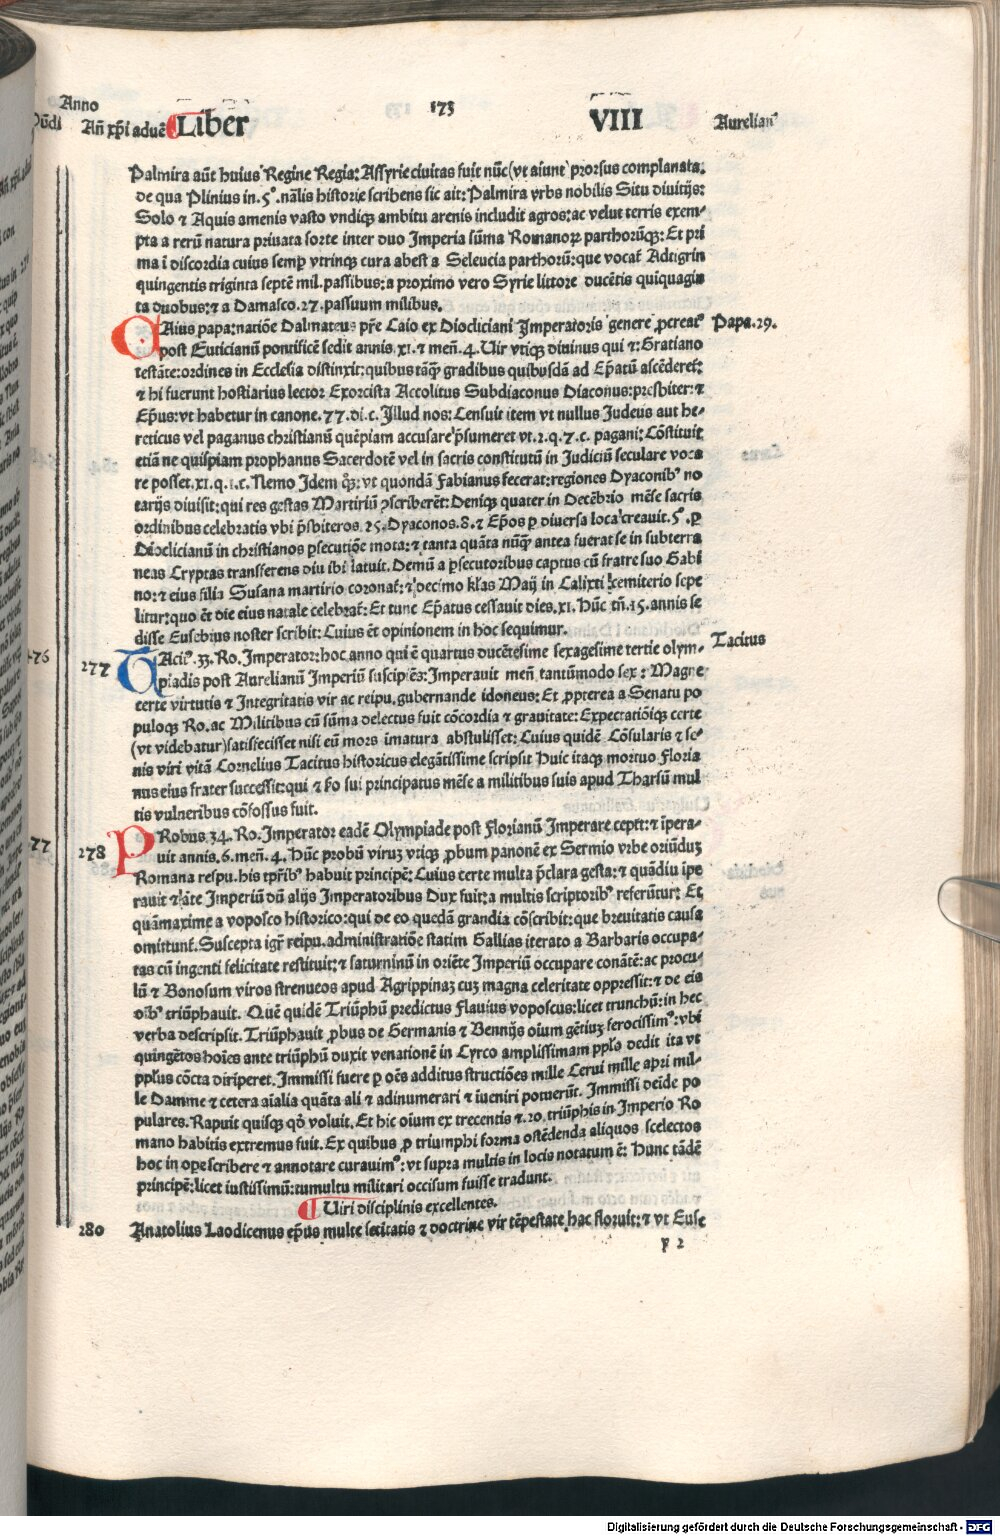 Anno
Mũdi Añ xp̃i aduẽ Liber 173 VIII Aurelianꝰ
Palmira aũt huius Regine Regia: Assyrie ciuitas fuit nũc (vt aiunt) prorsus complanata:
de qua Plinius in .5°. nãlis historie scribens sic ait: Palmira vrbs nobilis Situ diuitijs:
Solo ⁊ Aquis amenis vasto vndiqꝫ ambitu arenis includit agros: ac velut terris exem-
pta a rerũ natura priuata sorte inter duo Imperia sũma Romanoꝝ parthorũqꝫ: Et pri
ma ĩ discordia cuius semꝑ vtrinqꝫ cura abest a Seleucia parthorũ: que vocat̃ Adtigrin
quingentis triginta septẽ mil. passibus: a proximo vero Syrie littore ducẽtis quĩquagin
ta duobus: ⁊ a Damasco .27. passuum milibus.
CAius papa: natiõe Dalmateus pr̃e Caio ex Diocliciani Imperatoris genere ꝓcreatꝰ Papa .29.
post Euticianũ pontificẽ sedit annis .xi. ⁊ meñ .4. Uir vtiqꝫ diuinus qui ⁊: Gratiano
testãte: ordines in Ecclesia distinxit: quibus tãqꝫ gradibus quibusdã ad Ep̃atũ ascẽderet̃:
⁊ hi fuerunt hostiarius lector Exorcista Accolitus Subdiaconus Diaconus: presbiter: ⁊
Ep̃us: vt habetur in canone .77. di. c. Illud nos: Censuit item vt nullus Judeus aut he-
reticus vel paganus christianũ quẽpiam accusare p̃sumeret vt .2. q. 7. c. pagani: Cõstituit
etiã ne quispiam prophanus Sacerdotẽ vel in sacris constitutũ in Judiciũ seculare voca
re posset .xi. q. i. c. Nemo Idem qꝫ: vt quondã Fabianus fecerat: regiones Dyaconibꝰ no
tarijs diuisit: qui res gestas Martiriũ ꝯscriberẽt: Deniqꝫ quater in Decẽbrio mẽse sacris
ordinibus celebratis vbi p̃sbiteros .25. Dyaconos .8. ⁊ Ep̃os ꝑ diuersa loca creauit .5°. ꝑ
Dioclicianũ in christianos ꝑsecutiõe mota: ⁊ tanta quãta nũqꝫ antea fuerat se in subterra
neas Cryptas transferens diu ibi latuit. Demũ a ꝑsecutoribus captus cũ fratre suo Gabi
no: ⁊ eius filia Susana martirio coronat̃: ⁊ decimo kl̃as Maij in Calixti cemiterio sepe
litur: quo ẽt die eius natale celebrat̃: Et tunc Ep̃atus cessauit dies .xi. Hũc tñ .15. annis se
disse Eusebius noster scribit: Cuius ẽt opinionem in hoc sequimur. Tacitus
277 TAcitꝰ .33. Ro. Imperator: hoc anno qui ẽ quartus ducẽtesime sexagesime tertie olym-
piadis post Aurelianũ Imperiũ suscipiẽs: Imperauit meñ tantũmodo sex: Magne
certe virtutis ⁊ Integritatis vir ac reipu. gubernande idoneus: Et ꝓpterea a Senatu po
puloqꝫ Ro. ac Militibus cũ sũma delectus fuit cõcordia ⁊ grauitate: Expectatiõiqꝫ certe
(vt videbatur) satisfecisset nisi eũ mors imatura abstulisset: Cuius quidẽ Cõsularis ⁊ se-
nis viri vitã Cornelius Tacitus historicus elegãtissime scripsit Huic itaqꝫ mortuo Floria
nus eius frater successit: qui ⁊ s̃o sui principatus mẽse a militibus suis apud Tharsũ mul
tis vulneribus cõfossus fuit.
278 PRobus 34. Ro. Imperator eadẽ Olympiade post Florianũ Imperare cepit: ⁊ ĩpera-
uit annis .6. meñ .4. Hũc probũ viruꝫ vtiqꝫ ꝓbum panonẽ ex Sermio vrbe oriũduꝫ
Romana respu. his tp̃ribꝰ habuit principẽ: Cuius certe multa p̃clara gesta: ⁊ quãdiu ipe
rauit ⁊ ãte Imperiũ dũ alijs Imperatoribus Dux fuit: a multis scriptoribꝰ referũtur: Et
quãmaxime a voposco historico: qui de eo quedã grandia cõscribit: que breuitatis causa
omittunt̃. Suscepta igr̃ reipu. administratiõe statim Gallias iterato a Barbaris occupa-
tas cũ ingenti felicitate restituit: ⁊ saturninũ in oriẽte Imperiũ occupare conãtẽ: ac procu-
lũ ⁊ Bonosum viros strenueos apud Agrippinaꝫ cuꝫ magna celeritate oppressit: ⁊ de eis
oĩbꝰ triũphauit. Quẽ quidẽ Triũphũ predictus Flauius voposcus: licet trunchũ: in hec
verba descripsit. Triũphauit ꝓbus de Germanis ⁊ Bennijs oium gẽtiuꝫ ferocissimꝰ: vbi
quingẽtos hoĩes ante triũphũ duxit venationẽ in Cyrco amplissimam pp̃lo dedit ita vt
pp̃lus cõcta diriperet. Immissi fuere ꝑ oẽs additus structiões mille Cerui mille apri mil-
le Damme ⁊ cetera aĩalia quãta ali ⁊ adinumerari ⁊ iueniri potuerũt. Immissi deĩde po
pulares. Rapuit quisqꝫ qð voluit. Et hic oium ex trecentis ⁊ .20. triũphis in Imperio Ro
mano habitis extremus fuit. Ex quibus ꝓ triumphi forma ostẽdenda aliquos scelectos
hoc in ope scribere ⁊ annotare curauimꝰ: vt supra multis in locis notatum ẽ: Hunc tãdẽ
principẽ: licet iustissimũ: tumultu militari occisum fuisse tradunt.
Uiri disciplinis excellentes.
280 Anatolius Laodicenus ep̃us multe scitatis ⁊ doctrine vir tẽpestate hac floruit: ⁊ vt Euse
y 2
Digitalisierung gefördert durch die Deutsche Forschungsgemeinschaft - DFG